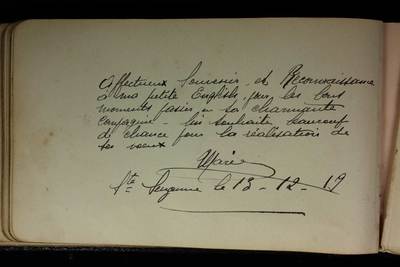 Affectueux Souvenir et Reconnaissance
à ma petite English, pour les bons
moments passés en sa charmante
compagnie - lui souhaite beaucoup
de chance pour la réalisation de
ses vœux
Marie
Ste Suzanne le 13-12-19